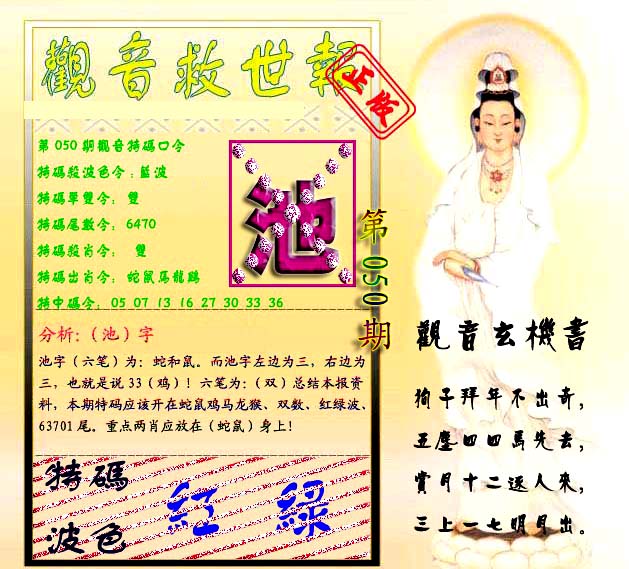 觀音救世報
正版
第050期觀音特碼口令
特碼殺波色令:藍波
特碼單雙令: 雙
特碼尾數令: 6470
特碼殺肖令: 雙
特碼出肖令: 蛇鼠馬龍鷄
特中碼令: 05 07 13 16 27 30 33 36
池
第050期
分析:(池)字
池字(六笔)为:蛇和鼠。而池字左边为三,右边为
三,也就是说33(鸡)!六笔为:(双)总结本报资
料,本期特码应该开在蛇鼠鸡马龙猴、双数、红绿波、
63701尾。重点两肖应放在(蛇鼠)身上!
特碼
波色
紅 綠
觀音玄機書
狗子拜年不出奇,
五塵四四馬先去,
賞月十二逐人來,
三上一七明月出。